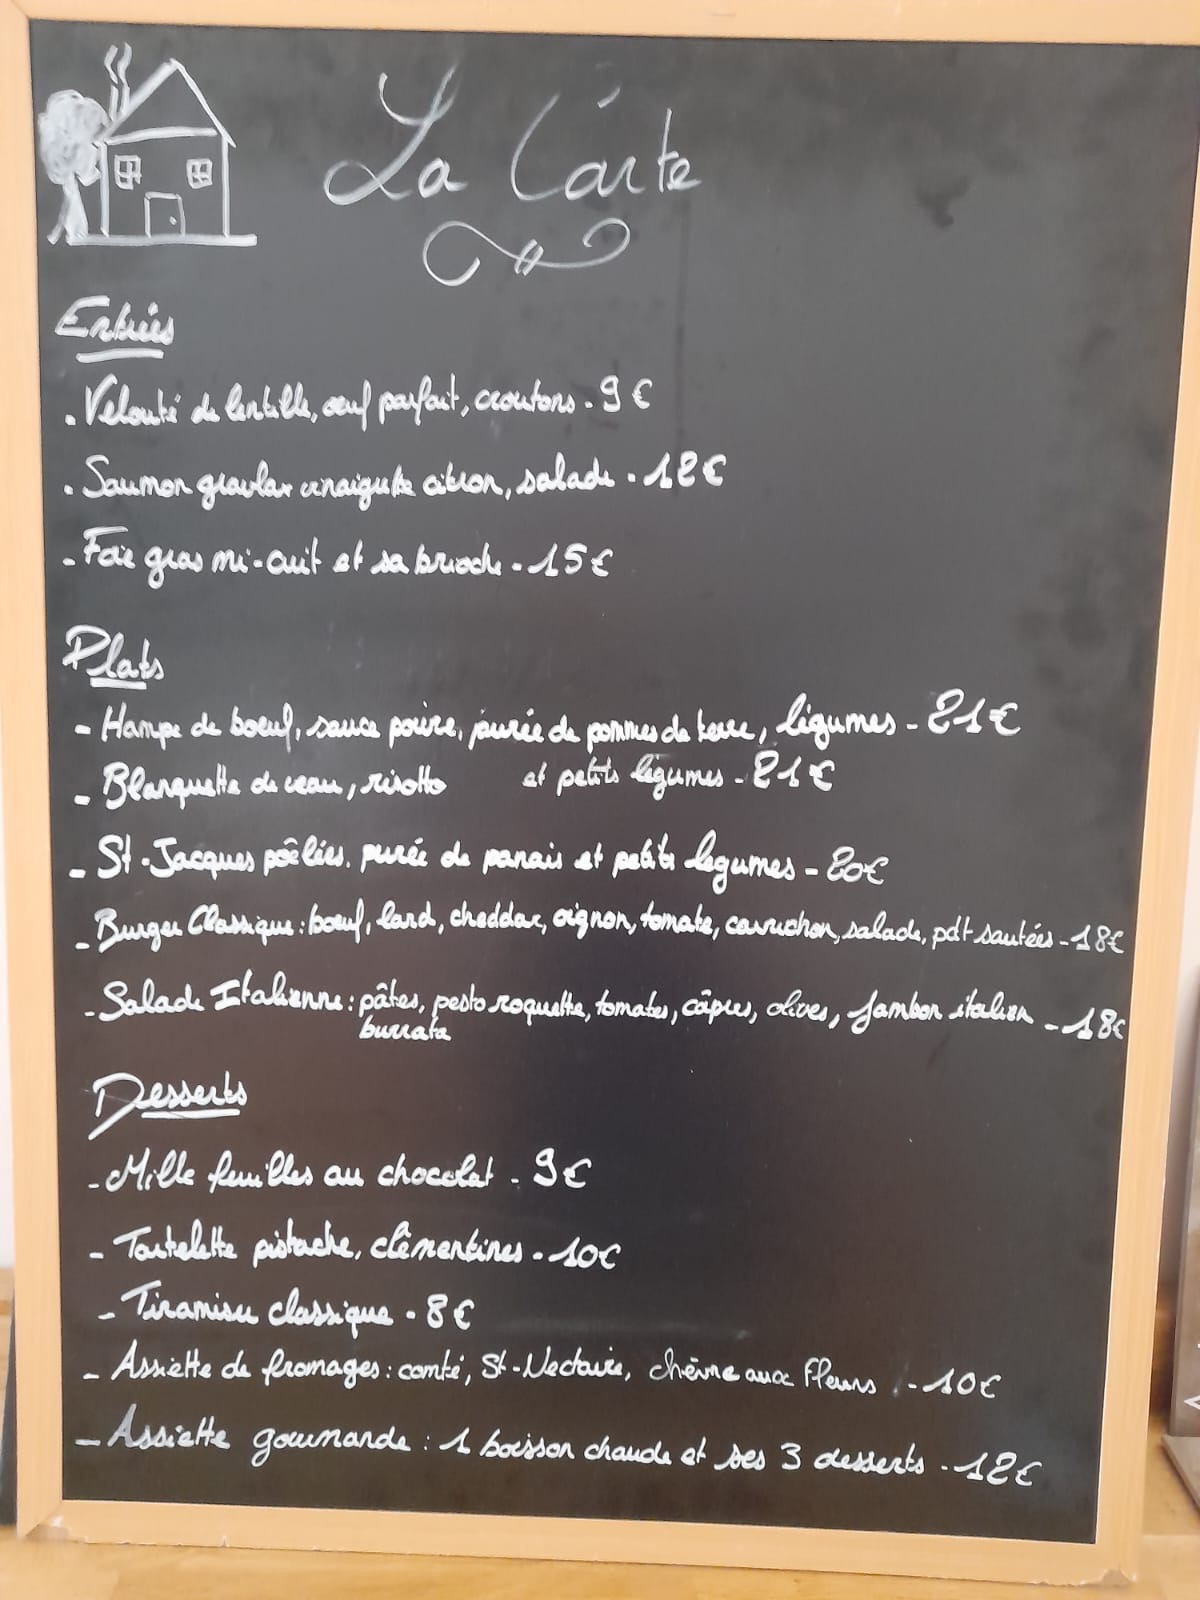 La Carte
Entrées
- Velouté de lentille, œuf parfait, croutons - 9€
- Saumon gravlax vinaigrette citron, salade - 12€
- Foie gras mi-cuit et sa brioche - 15€
Plats
- Hampe de boeuf, sauce poivre, purée de pommes de terre, légumes - 21€
- Blanquette de veau, risotto et petits légumes - 21€
- St-Jacques poêlées, purée de panais et petits légumes - 20€
- Burger Classique : boeuf, lard, cheddar, oignon, tomate, cornichon, salade, pdt sautées - 18€
- Salade Italienne : pâtes, pesto roquette, tomates, câpres, olives, jambon italien - 18€
burrata
Desserts
- Mille feuilles au chocolat - 9€
- Tartelette pistache, clémentines - 10€
- Tiramisu classique - 8€
- Assiette de fromages : comté, St-Nectaire, chèvre aux fleurs - 10€
- Assiette gourmande : 1 boisson chaude et ses 3 desserts - 12€